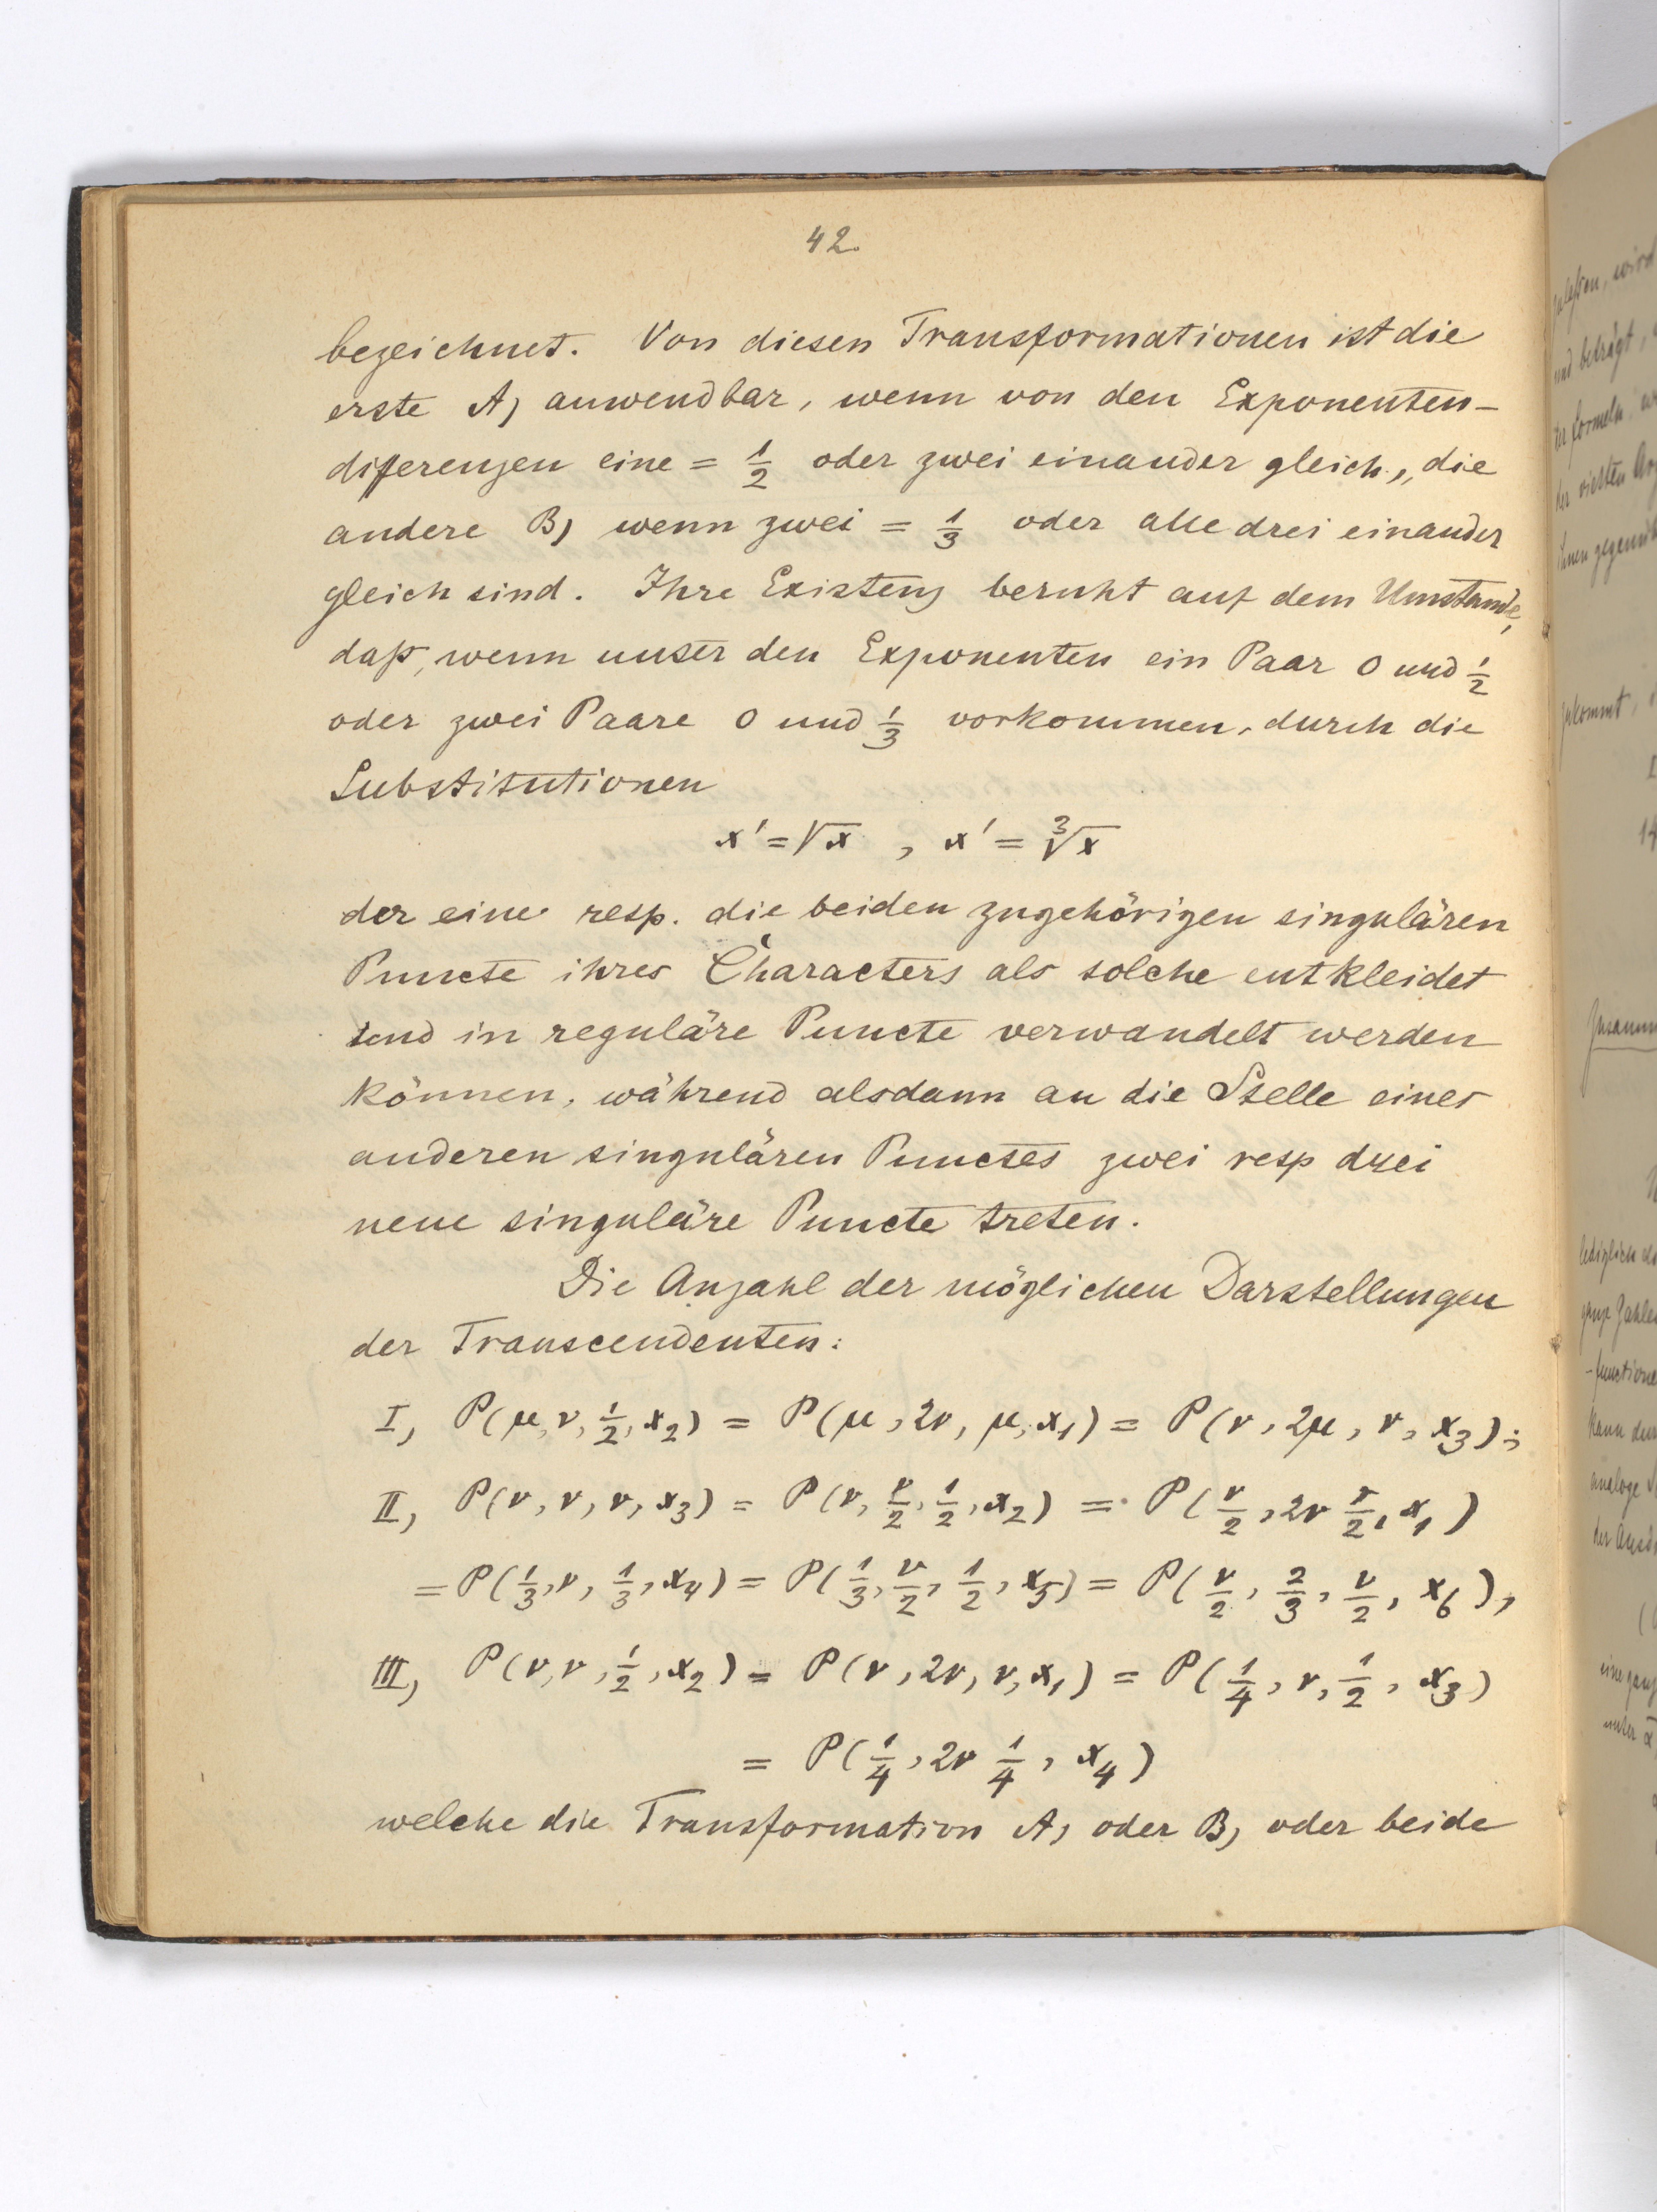 42.
bezeichnet. Von diesen Transformationen ist die
erste A) anwendbar, wenn von den Exponenten-
differenzen eine = 1/2 oder zwei einander gleich, die
andere B) wenn zwei = 1/3 oder alle drei einander
gleich sind. Ihre Existenz beruht auf dem Umstande,
daß, wenn unter den Exponenten ein Paar 0 und 1/2
oder zwei Paare 0 und 1/3 vorkommen, durch die
Substitutionen
x' = √x , x' = ∛x
der eine resp. die beiden zugehörigen singulären
Puncte ihres Characters als solche entkleidet
und in reguläre Puncte verwandelt werden
können, während alsdann an die Stelle eines
anderen singulären Punctes zwei resp drei
neue singuläre Puncte treten.
Die Anzahl der möglichen Darstellungen
der Transcendenten:
I) P(μ, ν, 1/2, x₂) = P(μ, 2ν, μ, x₁) = P(ν, 2μ, ν, x₃);
II) P(ν, ν, ν, x₃) = P(ν, ν/2, 1/2, x₂) = P(ν/2, 2ν ν/2, x₁)
= P(1/3, ν, 1/3, x₄) = P(1/3, ν/2, 1/2, x₅) = P(ν/2, 2/3, ν/2, x₆),
III) P(ν, ν, 1/2, x₂) = P(ν, 2ν, ν, x₁) = P(1/4, ν, 1/2, x₃)
= P(1/4, 2ν 1/4, x₄)
welche die Transformation A) oder B) oder beide